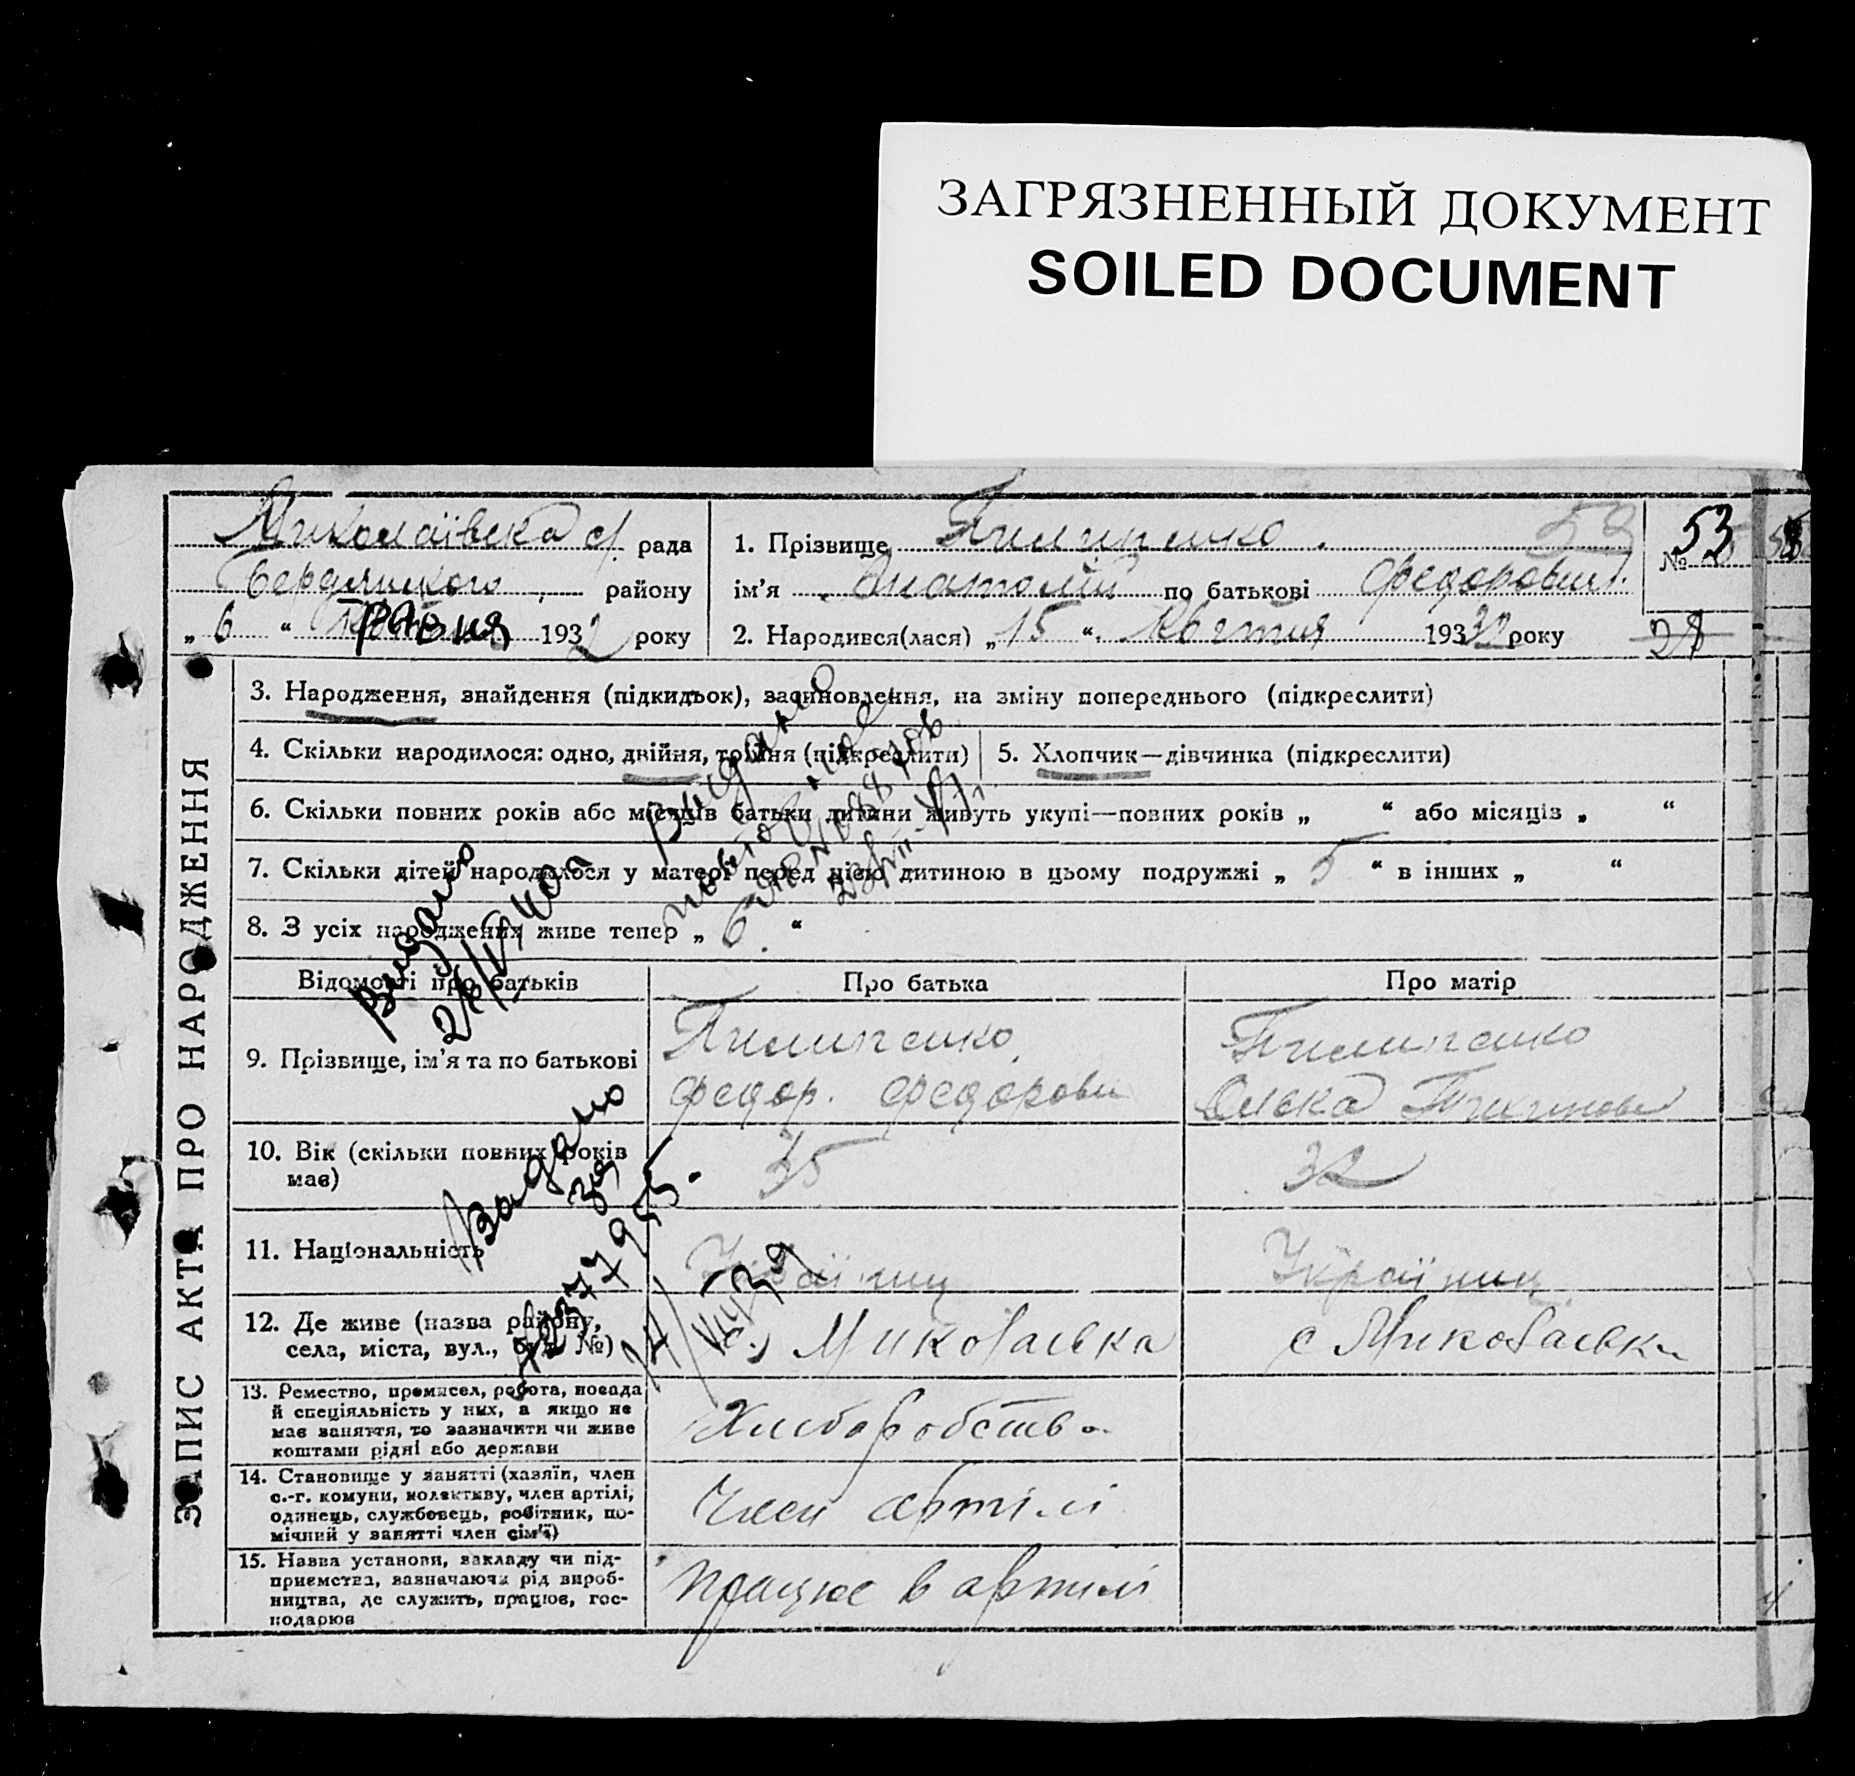 ЗАГРЯЗНЕННЫЙ ДОКУМЕНТ
SOILED DOCUMENT
ЗАПИС АКТА ПРО НАРОДЖЕННЯ
Миколаївска с/ рада
Бердянського району
„ 6 “ травня 1932 року
1. Прізвище Пилипенко 53
ім'я Анатолій по батькові Федорович
2. Народився(лася) „ 15 “ Квітня 1932 року
№ 53
28
3. Народження, знайдення (підкидьок), зачиновлення, на зміну попереднього (підкреслити)
4. Скільки народилося: одно, двійня, тройня (підкреслити)
5. Хлопчик—дівчинка (підкреслити)
6. Скільки повних років або місяців батьки дитини живуть укупі—повних років „ “ або місяців „ “
7. Скільки дітей народилося у матері перед цією дитиною в цьому подружжі „ 5 “ в інших „ “
8. З усіх народжених живе тепер „ 6 “
Видано
Видано
Видано
Відомості про батьків
Про батька
Про матір
9. Прізвище, ім'я та по батькові
Пилипенко
Федор. Федорови
Пилипенко
10. Вік (скільки повних років
має)
35
32
11. Національність
Україниц
Україниц
12. Де живе (назва району,
села, міста, вул., буд. №)
с. Миколаевка
с Миколаевка
13. Ремество, промисел, робота, посада
й спеціяльність у них, а якщо не
має заняття, то зазначити чи живе
коштами рідні або держави
Хлиборобство
14. Становище у занятті (хазяїн, член
с.-г. комуни, колективу, член артілі,
одинець, службовець, робітник, по-
мічний у занятті член сім'ї)
Член артілі
15. Назва установи, закладу чи під-
приємства, зазначаючи рід вироб-
ництва, де служить, працює, гос-
подарює
працює в артилі